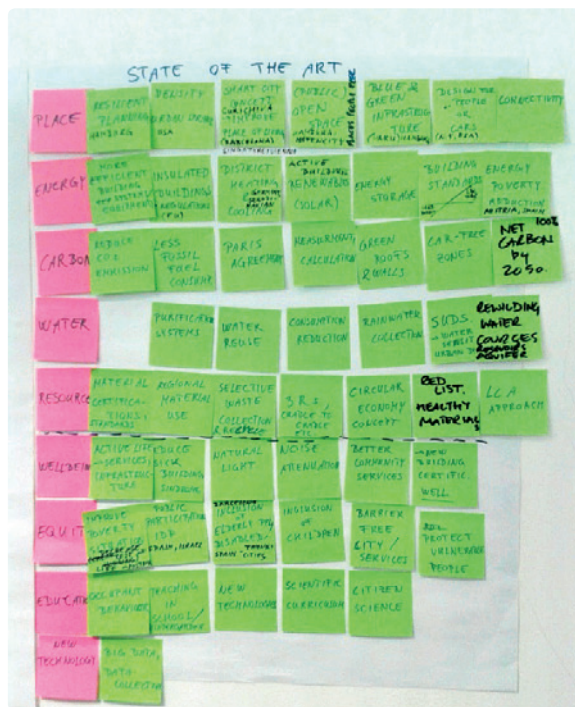 STATE OF THE ART
PLACE
RESILIENT
PLANNING
HAMBURG
DENSITY
USA
SMART CITY
CONCEPT
(BARCELONA)
(PUBLIC)
OPEN
SPACE
BLUE &
GREEN
INFRASTRUC
TURE
DESIGN FOR
PEOPLE
OR
CARS
CONNECTIVITY
ENERGY
MORE
EFFICIENT
BUILDING
SYSTEMS
EQUIPMENT
INSULATED
BUILDINGS
REGULATIONS
DISTRICT
HEATING
COOLING
ACTIVE BUILDING
RENEWABLES
(SOLAR)
ENERGY
STORAGE
BUILDING
STANDARDS
ENERGY
POVERTY
REDUCTION
AUSTRIA, SPAIN
CARBON
REDUCE
CO2
EMISSION
LESS
FOSSIL
FUEL
CONSUMP
PARIS
AGREEMENT
MEASUREMENT,
CALCULATION
GREEN
ROOFS
& WALLS
CAR-FREE
ZONES
100%
NET
CARBON
by
2050.
WATER
PURIFICATION
SYSTEMS
WATER
REUSE
CONSUMPTION
REDUCTION
RAINWATER
COLLECTION
SUDS.
REWILDING
WATER
COURSES
AQUIFER
RESOURCE
MATERIAL
CERTIFICA-
TIONS,
STANDARDS
REGIONAL
MATERIAL
USE
SELECTIVE
WASTE
COLLECTION
& RECYCLE
3 R.S,
CRADLE TO
CRADLE
ETC
CIRCULAR
ECONOMY
CONCEPT
RED
LIST,
HEALTHY
MATERIALS
LCA
APPROACH
WELLBEIN
ACTIVE LIFE
→SERVICES,
INFRASTRUC-
TURE
REDUCE
SICK
BUILDING
SINDROME
NATURAL
LIGHT
NOISE
ATTENUATION
BETTER
COMMUNITY
SERVICES
→NEW
BUILDING
CERTIFIC.
WELL
EQUIT
IMPROVE
POVERTY
SITUATION
PUBLIC
PARTICIPATION
IDP
SPAIN, ISRAEL
INCLUSION OF
ELDERLY PPL
DISABLED
INCLUSION OF
CHILDREN
BARRIER
FREE
CITY/
SERVICES
PROTECT
VULNERABLE
PEOPLE
EDUCATI
OCCUPANT
BEHAVIOR
TEACHING
IN
SCHOOL/
NEW
TECHNOLOGIES
SCIENTIFIC
CURRICULUM
CITIZEN
SCIENCE
NEW
TECHNOLOGY
BIG DATA,
DATA
COLLECTION